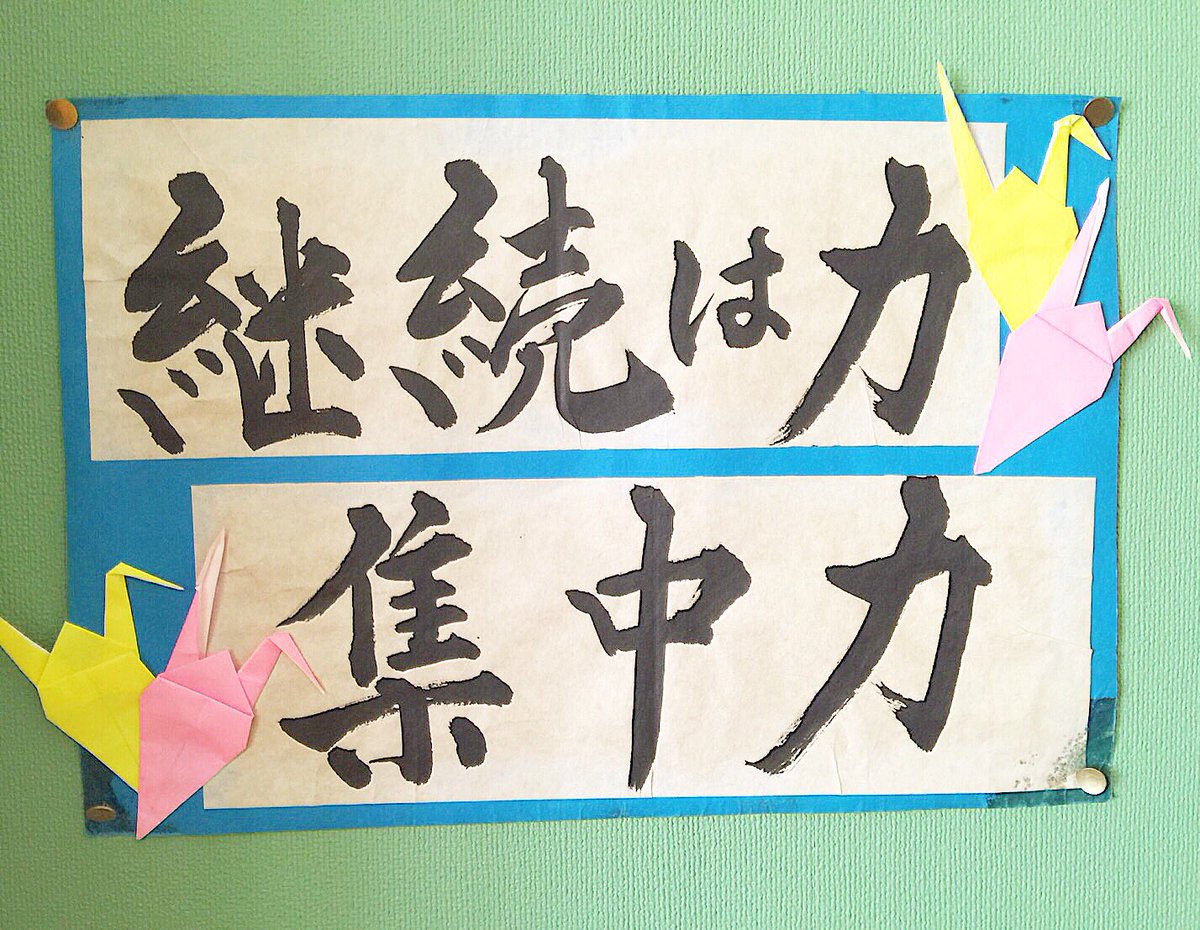 継続は力
集中力